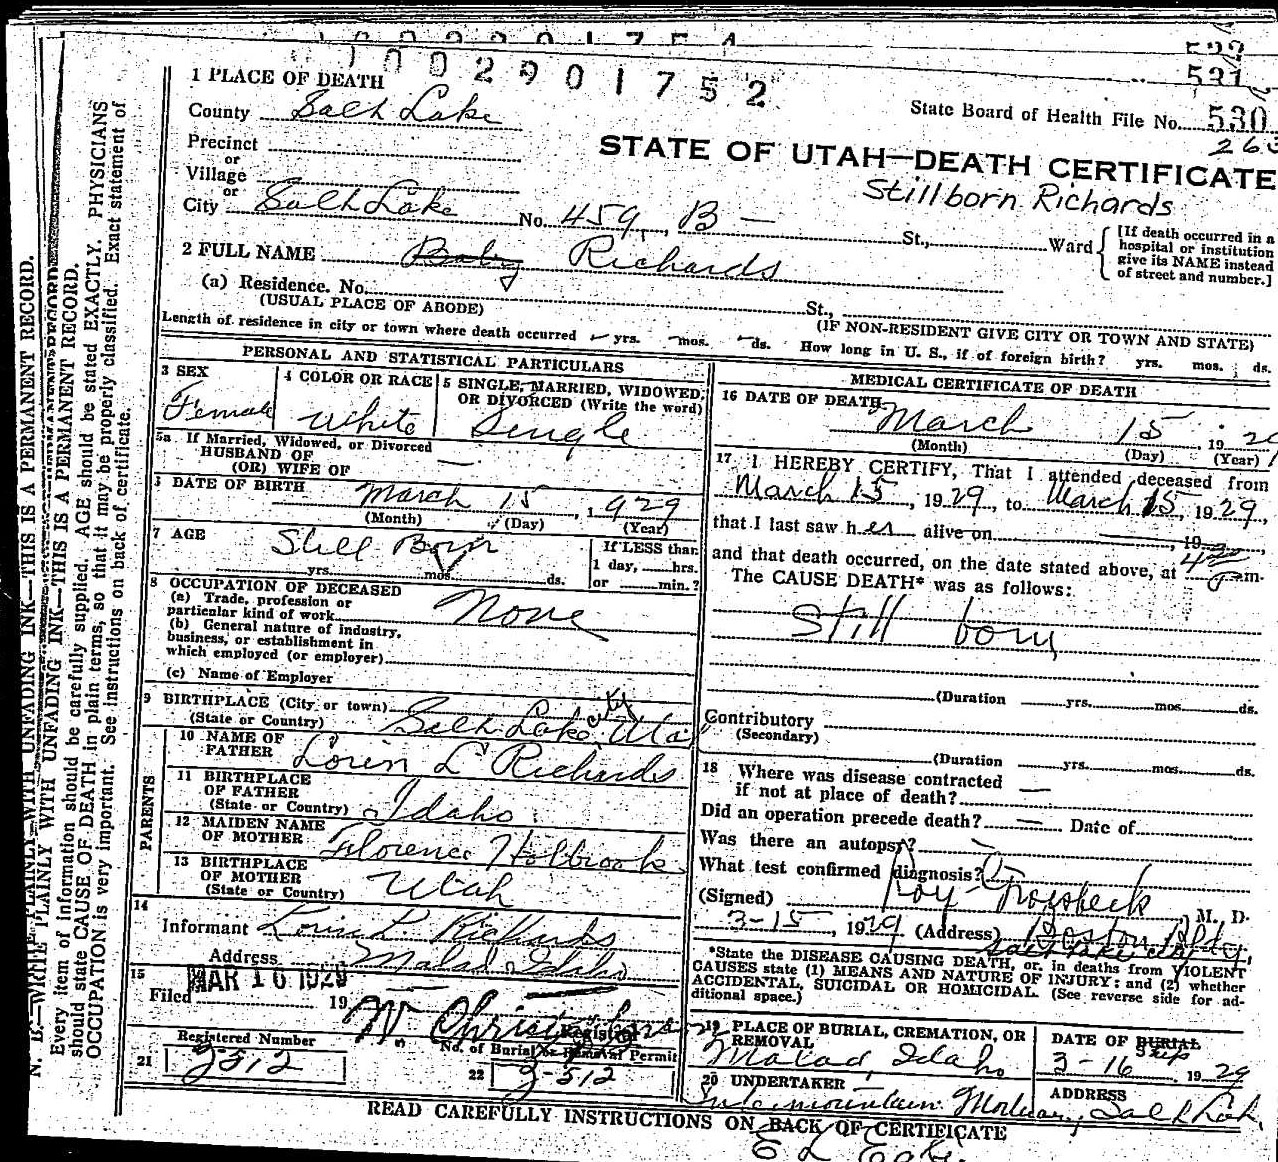 1002901752
522
531
1 PLACE OF DEATH
State Board of Health File No. 530
County Salt Lake
263
Precinct
STATE OF UTAH—DEATH CERTIFICATE
or
Village
Stillborn Richards
or
City Salt Lake No. 459, B — St., Ward
[If death occurred in a
hospital or institution
give its NAME instead
of street and number.]
2 FULL NAME Baby Richards
(a) Residence. No. St.,
(USUAL PLACE OF ABODE) (IF NON-RESIDENT GIVE CITY OR TOWN AND STATE)
Length of residence in city or town where death occurred yrs. mos. ds. How long in U. S., if of foreign birth? yrs. mos. ds.
PERSONAL AND STATISTICAL PARTICULARS
3 SEX
Female
4 COLOR OR RACE
White
5 SINGLE, MARRIED, WIDOWED,
OR DIVORCED (Write the word)
Single
5a If Married, Widowed, or Divorced
HUSBAND OF
(OR) WIFE OF —
DATE OF BIRTH March 15, 1929
(Month) (Day) (Year)
7 AGE Still Born
yrs. mos. ds.
If LESS than
1 day, hrs.
or min.?
8 OCCUPATION OF DECEASED
(a) Trade, profession or
particular kind of work None
(b) General nature of industry,
business, or establishment in
which employed (or employer)
(c) Name of Employer
9 BIRTHPLACE (City or town)
(State or Country) Salt Lake City
PARENTS
10 NAME OF
FATHER Loren L Richards
11 BIRTHPLACE
OF FATHER
(State or Country) Idaho
12 MAIDEN NAME
OF MOTHER Florence Holbrook
13 BIRTHPLACE
OF MOTHER
(State or Country) Utah
14
Informant L Richards
Address Malad Idaho
15
Filed MAR 16 1929 19
Registrar
Registered Number
21 2-512
No. of Burial or Removal Permit
22 2-512
MEDICAL CERTIFICATE OF DEATH
16 DATE OF DEATH March 15, 1929
(Month) (Day) (Year)
17 I HEREBY CERTIFY, That I attended deceased from
March 15, 1929, to March 15, 1929,
that I last saw her alive on , 19
and that death occurred, on the date stated above, at m.
The CAUSE DEATH* was as follows:
Still born
(Duration yrs. mos. ds.
Contributory
(Secondary)
(Duration yrs. mos. ds.
18 Where was disease contracted
if not at place of death? —
Did an operation precede death? — Date of
Was there an autopsy? —
What test confirmed diagnosis?
(Signed) Roy Groesbeck M. D.
3-15, 1929 (Address) Boston Bldg,
Salt Lake City
*State the DISEASE CAUSING DEATH, or, in deaths from VIOLENT
CAUSES state (1) MEANS AND NATURE OF INJURY: and (2) whether
ACCIDENTAL, SUICIDAL OR HOMICIDAL. (See reverse side for ad-
ditional space.)
19 PLACE OF BURIAL, CREMATION, OR
REMOVAL
Malad, Idaho
DATE OF BURIAL
Ship
3-16 1929
20 UNDERTAKER
Intermountain Mortuary,
ADDRESS
Salt Lake
READ CAREFULLY INSTRUCTIONS ON BACK OF CERTIFICATE
N. B.—WRITE PLAINLY WITH UNFADING INK—THIS IS A PERMANENT RECORD.
Every item of information should be carefully supplied. AGE should be stated EXACTLY. PHYSICIANS
should state CAUSE OF DEATH in plain terms, so that it may be properly classified. Exact statement of
OCCUPATION is very important. See instructions on back of certificate.